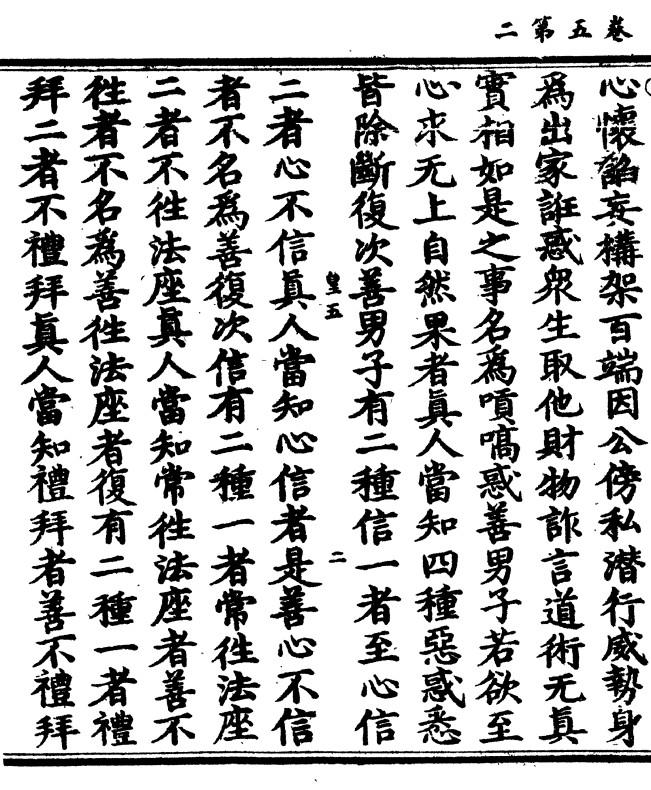 卷五第二
心懷諂妄構架百端因公傍私潛行威勢身
爲出家誑惑衆生取他財物詐言道術无真
實相如是之事名爲嗊㗣惑善男子若欲至
心求无上自然果者真人當知四種惡惑悉
皆除斷復次善男子有二種信一者至心信
皇五
二
二者心不信真人當知心信者是善心不信
者不名爲善復次信有二種一者常徃法座
二者不徃法座真人當知常徃法座者善不
徃者不名爲善徃法座者復有二種一者禮
拜二者不禮拜真人當知禮拜者善不禮拜